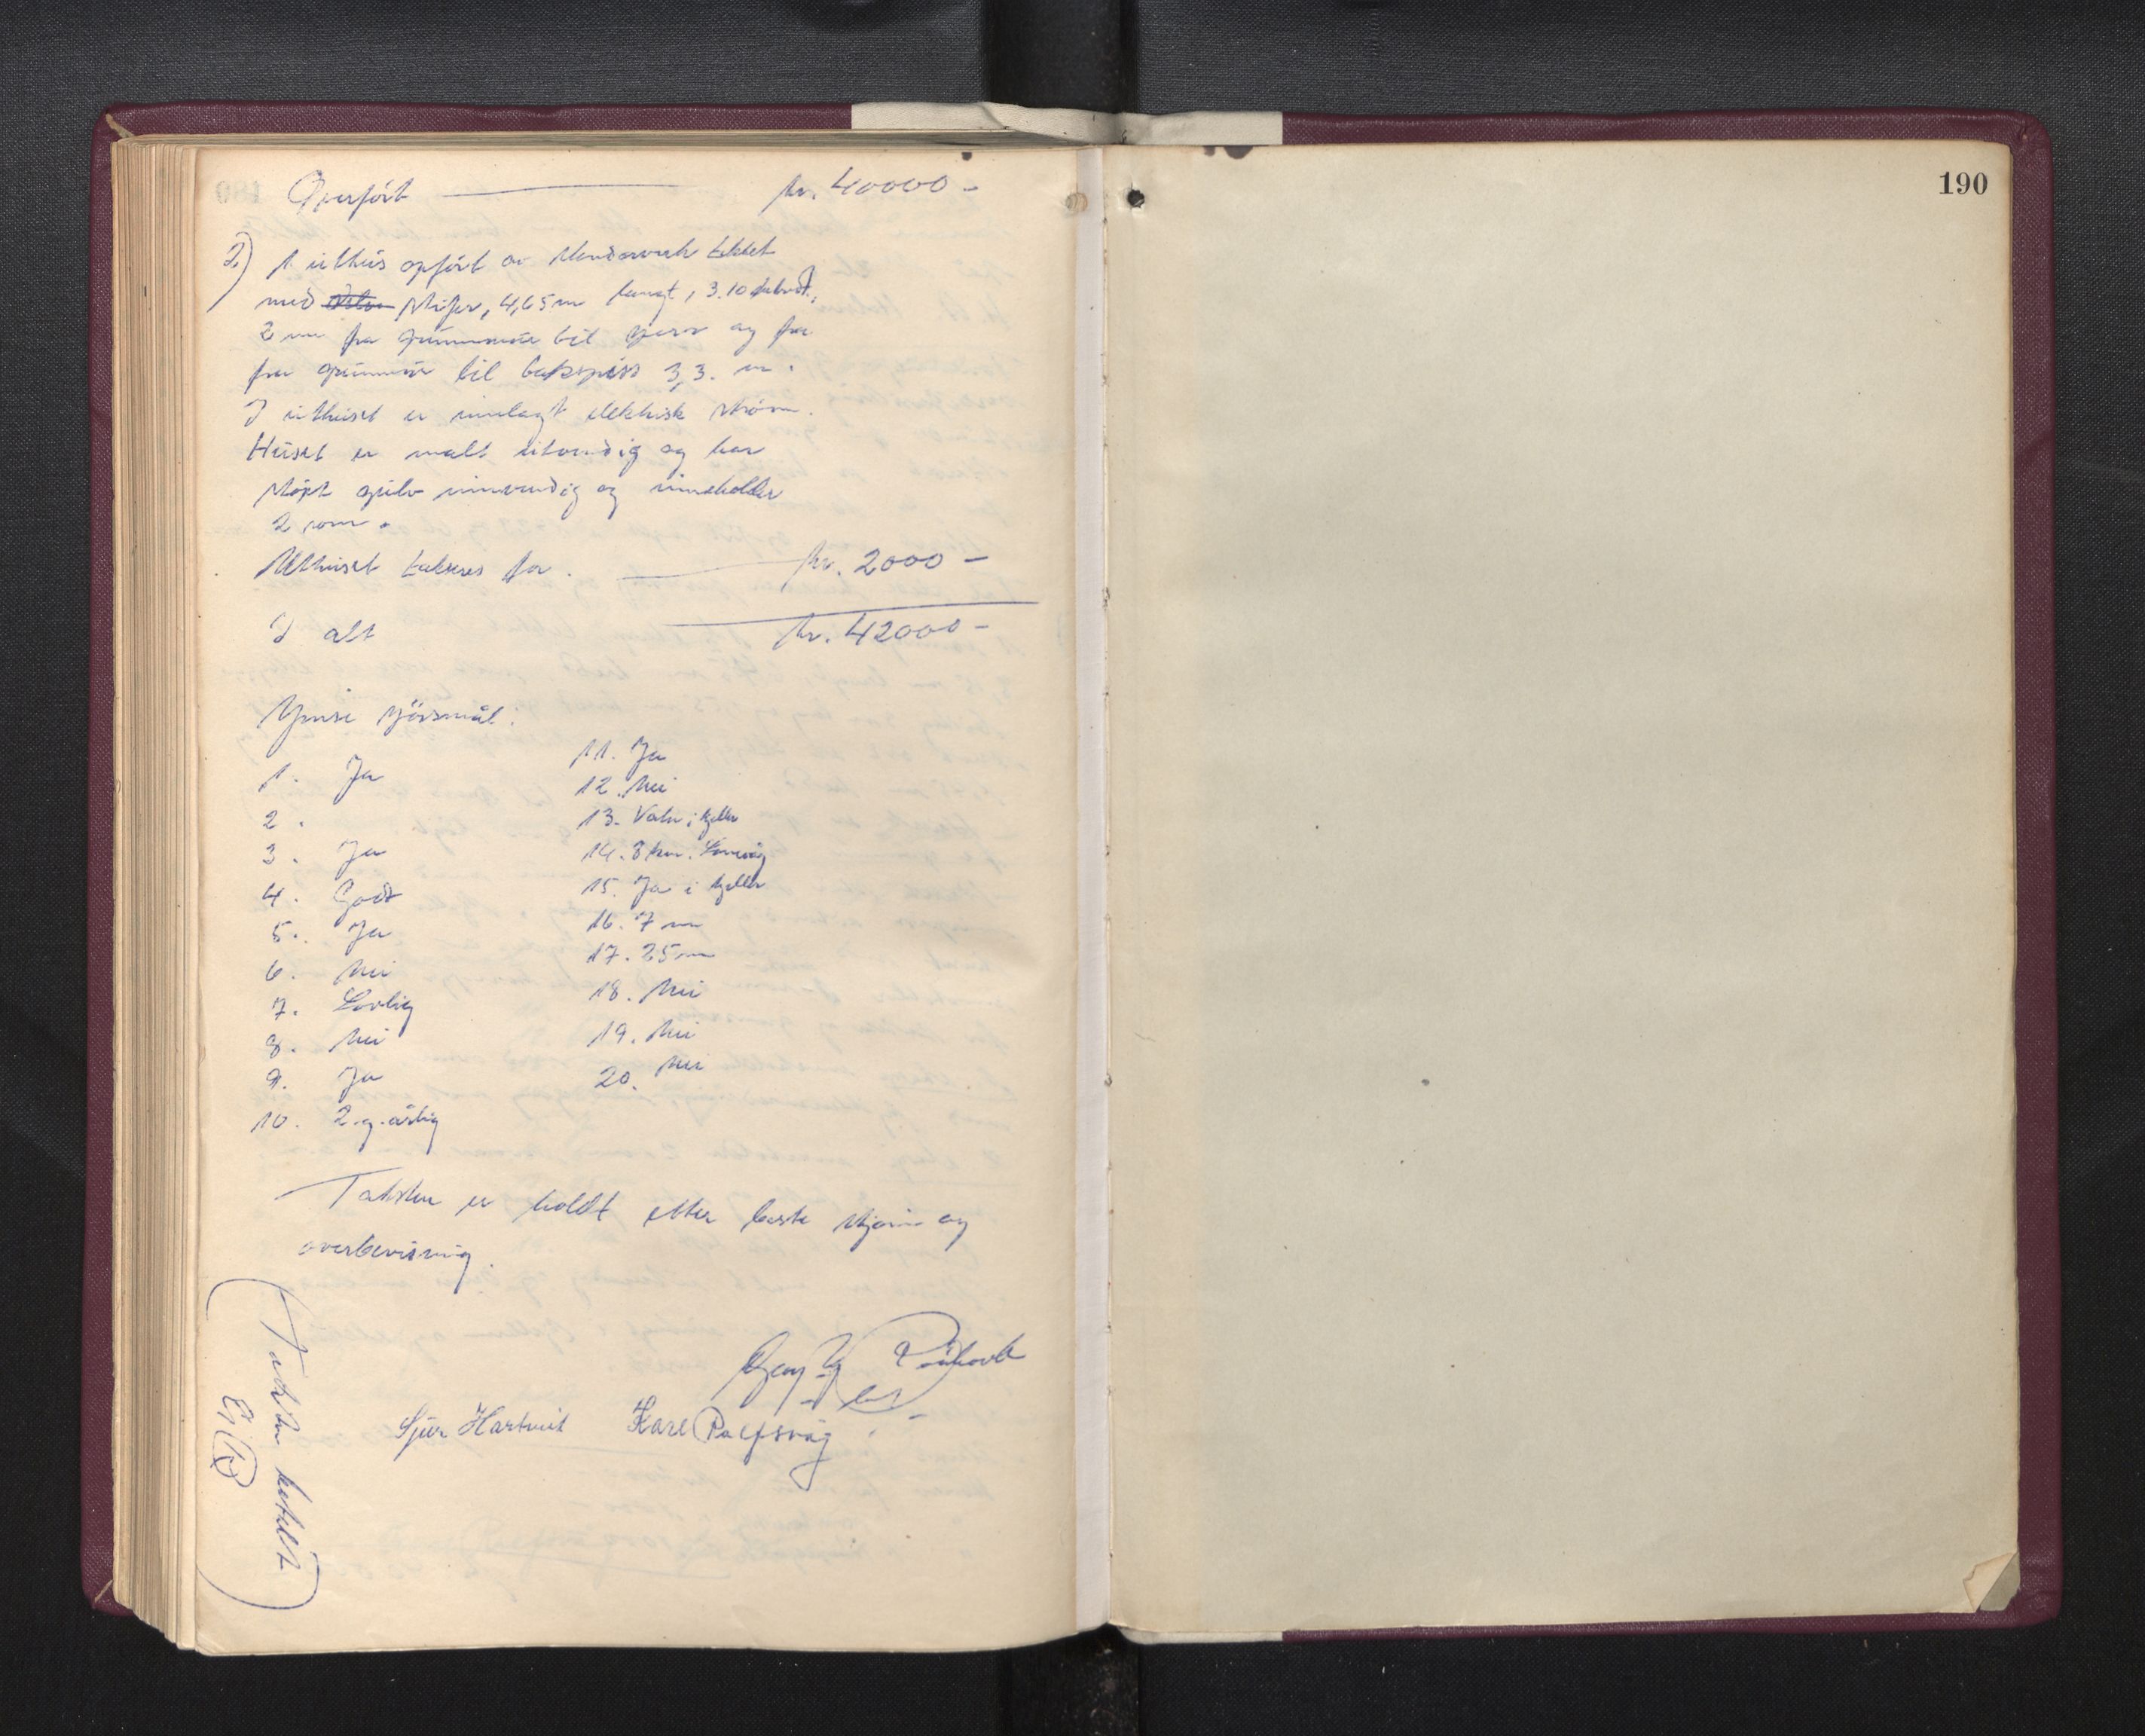 190
Overført kr. 40000-
2) 1 uthus opført av stenderverk tekket
med skifer, 4,65 m langt, 3.10 m bredt,
2 m fra grunnmur til gesims og fra
fra grunnmur til takspiss 3,3. m.
I uthuset er innlagt elektrisk strøm.
Huset er malt utvendig og har
støpt gulv innvendig og inneholder
2 rom.
Uthuset takseres for. kr. 2000-
I alt kr. 42000-
spørsmål:
1. Ja
2.
3. Ja
4. Godt
5. Ja
6. Nei
7. Lovlig
8. Nei
9. Ja
10. 2.g. årlig
11. Ja
12. Nei
13. Vatn i kjeller
14. 8 km.
15. Ja i kjeller
16. 7 m
17. 25 m
18. Nei
19. Nei
20. Nei
Taksten er holdt etter beste skjønn og
overbevisning.
Sjur Hartveit Karl
Taksten betalt